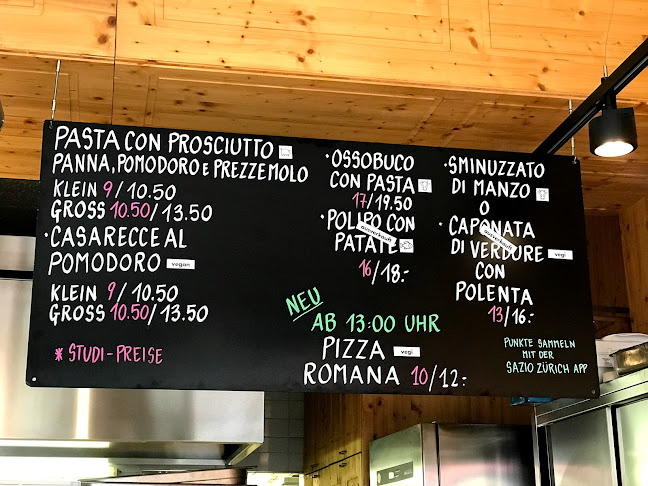 PASTA CON PROSCIUTTO
PANNA, POMODORO E PREZZEMOLO
KLEIN 9/10.50
GROSS 10.50/13.50
·CASARECCE AL
POMODORO vegan
KLEIN 9/10.50
GROSS 10.50/13.50
* STUDI-PREISE
·OSSOBUCO
CON PASTA
17/19.50
·POLIPO CON
ausverkauft
PATATE
16/18.-
NEU
AB 13:00 UHR
PIZZA vegi
ROMANA 10/12.-
·SMINUZZATO
DI MANZO
O
CAPONATA
ausverkauft
DI VERDURE vegi
CON
POLENTA
13/16.-
PUNKTE SAMMELN
MIT DER
SAZIO ZÜRICH APP